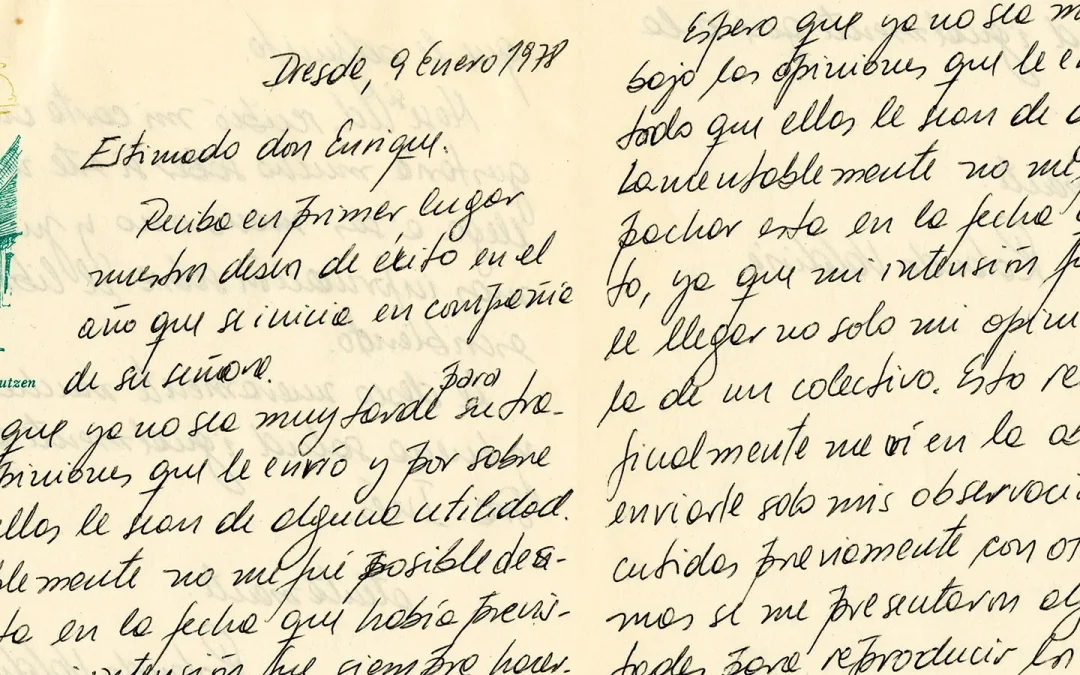 Dresde, 9 Enero 1978
Estimado don Enrique.
Reciba en primer lugar
nuestros deseos de éxito en el
año que se inicia en compañía
de su señora.
utzen
para
que ya no sea muy tarde su tra-
piniones que le envío y por sobre
ellas le sean de alguna utilidad.
blemente no me fué posible des-
ta en la fecha que había previs-
intensión fue siempre hacer-
Espero que ya no sea m
bajo las opiniones que le e
todo que ellas le sean de a
Lamentablemente no me
pachar esta en la fecha q
to, ya que mi intensión fu
le llegar no solo mi opini
la de un colectivo. Esto re
finalmente me vi en la ob
enviarle solo mis observaci
cutidas previamente con ot
mas se me presentaron alg
tades para reproducir los